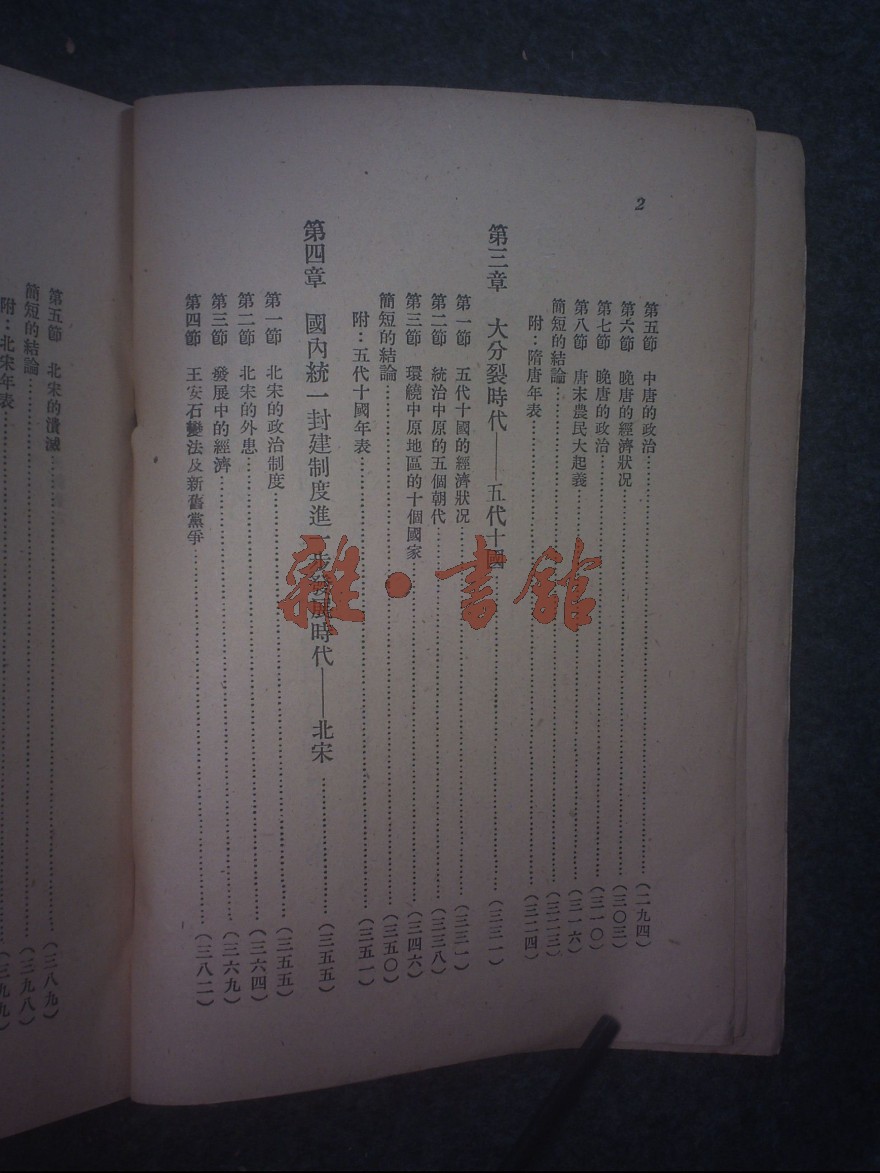 2
第五節　中唐的政治……………………（二九四）
第六節　晚唐的經濟狀况……………………（三〇三）
第七節　晚唐的政治……………………（三一〇）
第八節　唐末農民大起義……………………（三一六）
簡短的結論……………………（三二三）
附：隋唐年表……………………（三二四）
第三章　大分裂時代——五代十國……………………（三三一）
第一節　五代十國的經濟狀况……………………（三三一）
第二節　統治中原的五個朝代……………………（三三八）
第三節　環繞中原地區的十個國家……………………（三四六）
簡短的結論……………………（三五〇）
附：五代十國年表……………………（三五一）
第四章　國內統一封建制度進一步發展時代——北宋……………………（三五五）
第一節　北宋的政治制度……………………（三五五）
第二節　北宋的外患……………………（三六四）
第三節　發展中的經濟……………………（三六九）
第四節　王安石變法及新舊黨爭……………………（三八二）
第五節　北宋的潰滅……………………（三八九）
簡短的結論……………………（三九八）
附：北宋年表……………………（三九九）
雜·書館